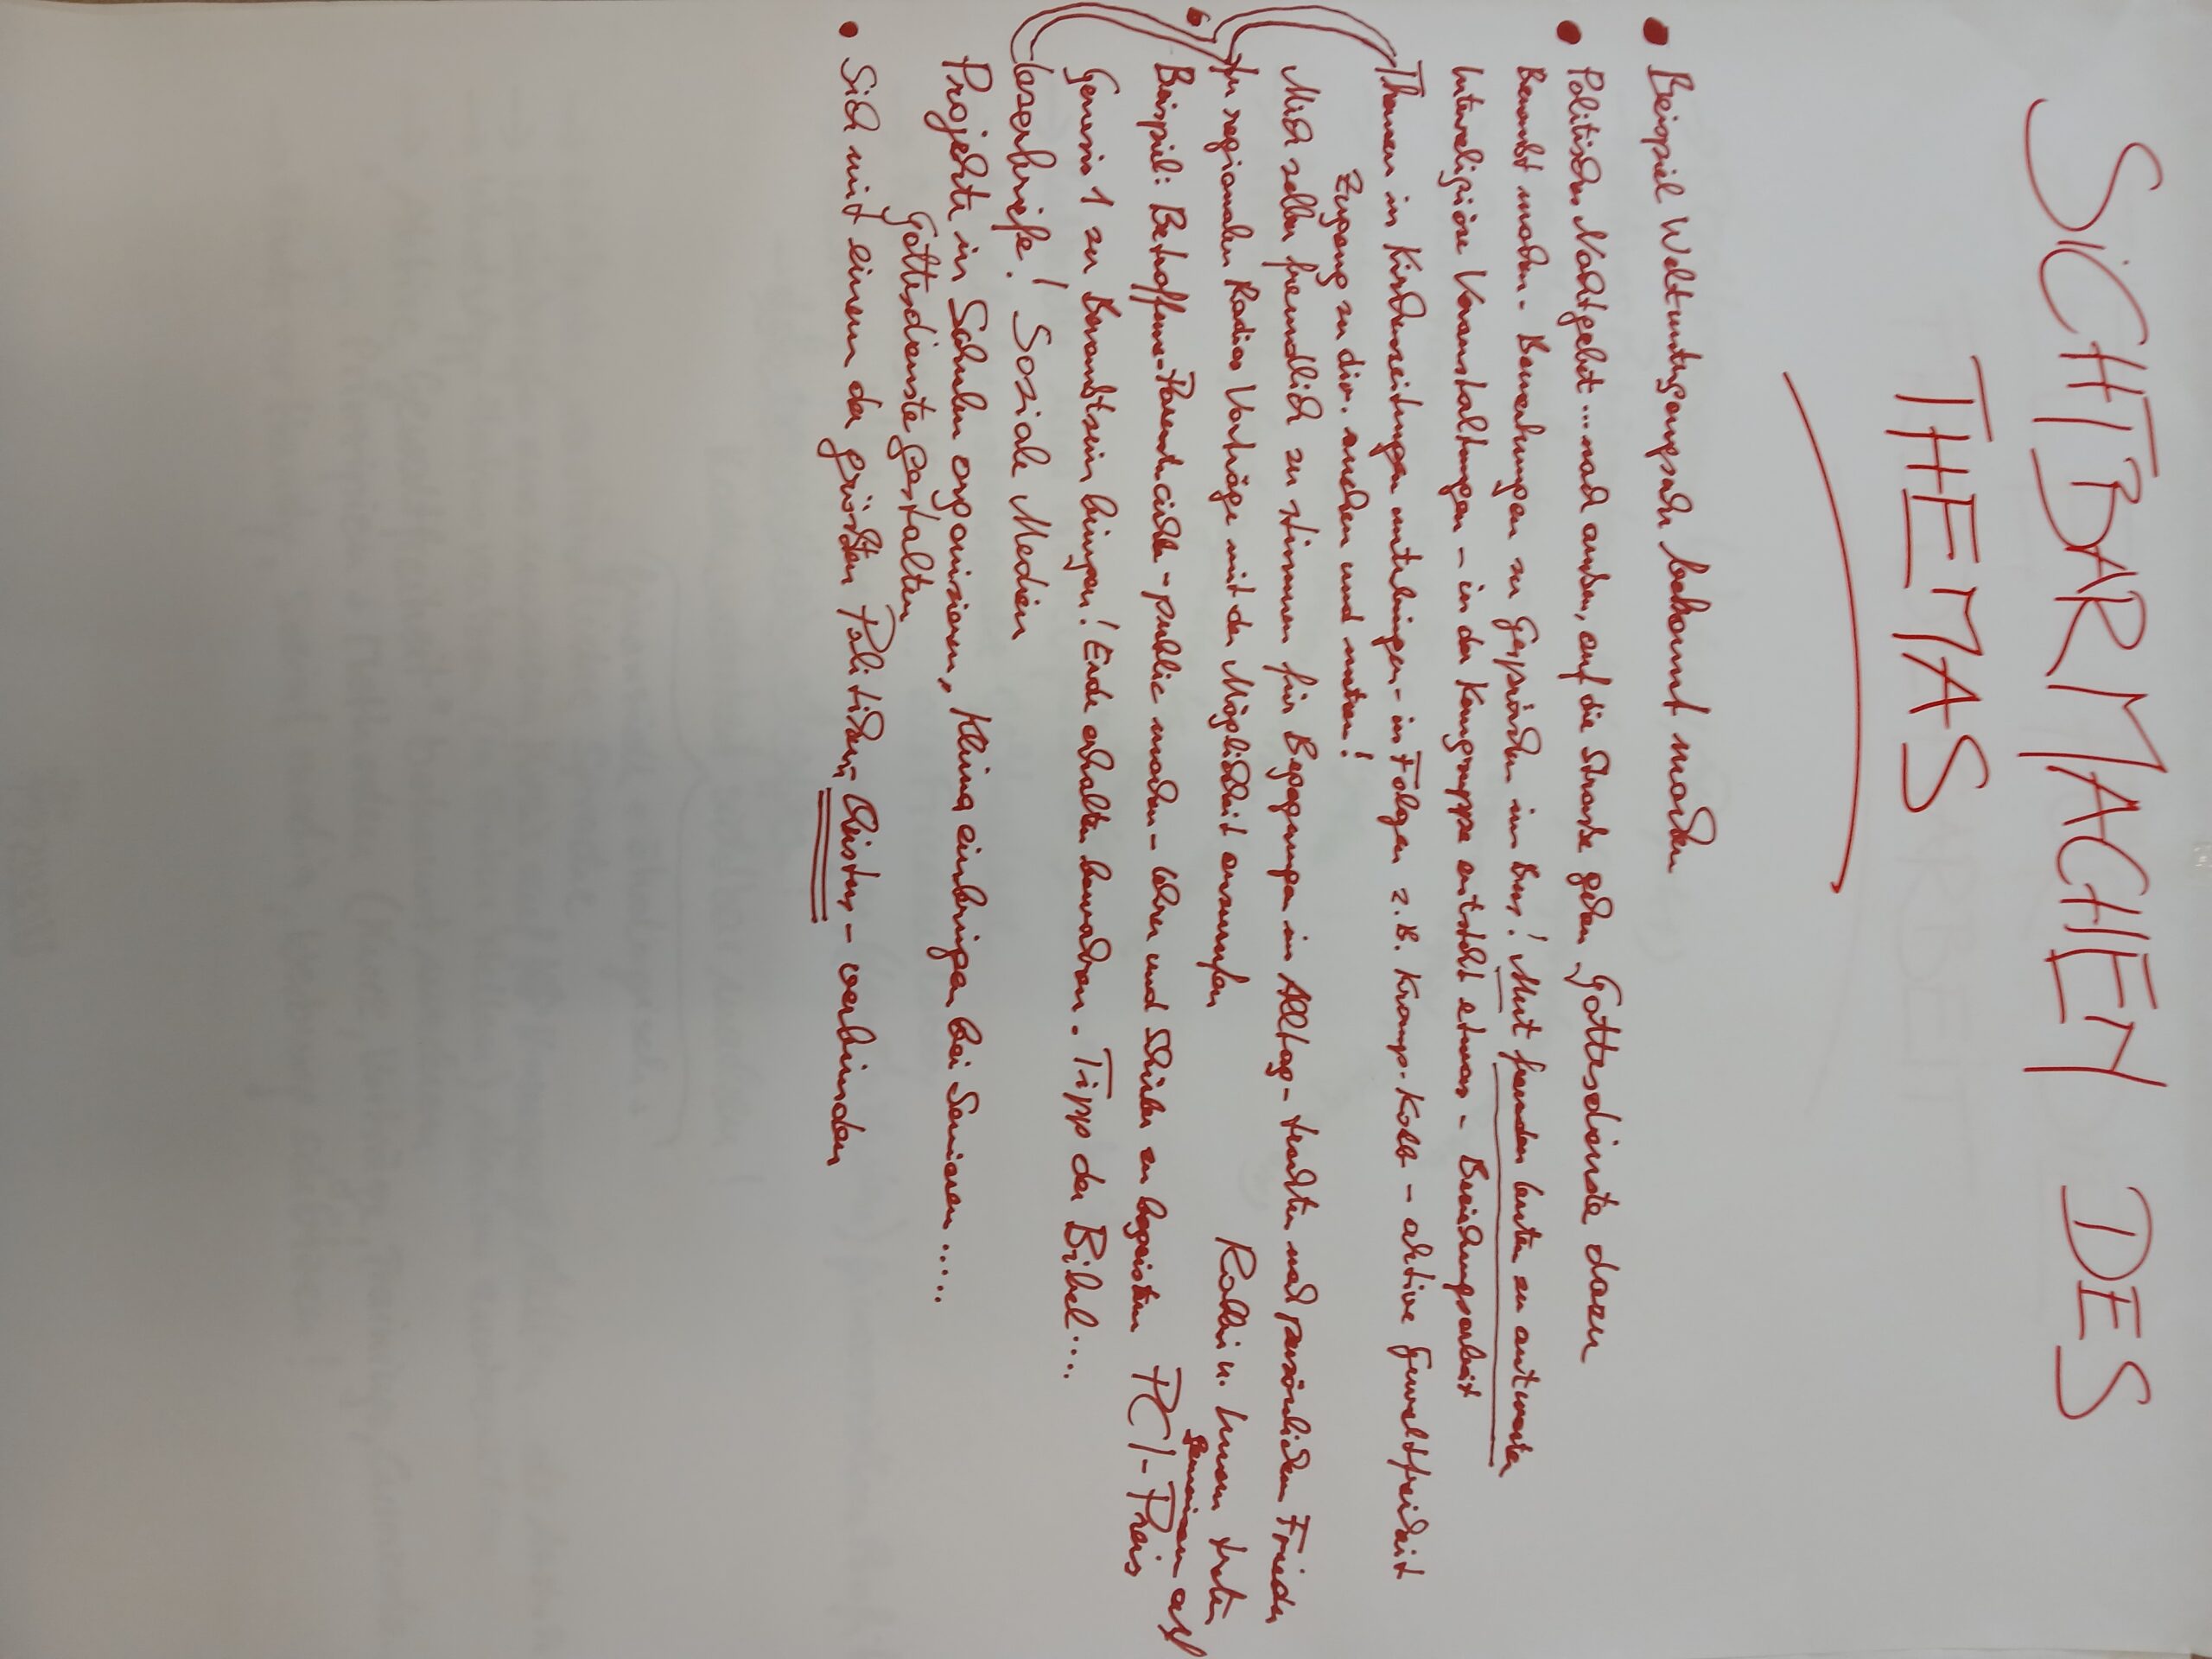 SICHTBARMACHEN DES
THEMAS
• Beispiel Weltuntergangsuhr bekannt machen
• Politisches Nachtgebet... nach außen, auf die Strasse gehen, Gottesdienste dazu
Bewusst machen - Bemerkungen zu Gesprächen im Bus! Mut fremden Leuten zu antworten
Interreligiöse Veranstaltungen - in der Kerngruppe entsteht etwas - Beziehungsarbeit
Themen in Kirchenzeitungen unterbringen - in Folgen z.B. Kramp-Kolb - aktive Gewaltfreiheit
Zugang zu dir. suchen und nutzen!
Mich selber freundlich zu stimmen für Begegnungen im Alltag - trachten nach persönlichem Frieden
In regionalen Radios Vorträge mit der Möglichkeit anzurufen
Rabbi u. Imam treten
gemeinsam auf
Beispiel: Betroffene - Parents circle - public machen - Lehrer und Schüler zu begeistern PCI-Preis
Genesis 1 zu Bewusstsein bringen! Erde erhalten bewahren. Tipp der Bibel....
Leserbriefe! Soziale Medien
Projekte in Schulen organisieren, Klima einbringen bei Senioren.....
Gottesdienste gestalten
• Sich mit einem der grössten Politiker - Christus - verbinden